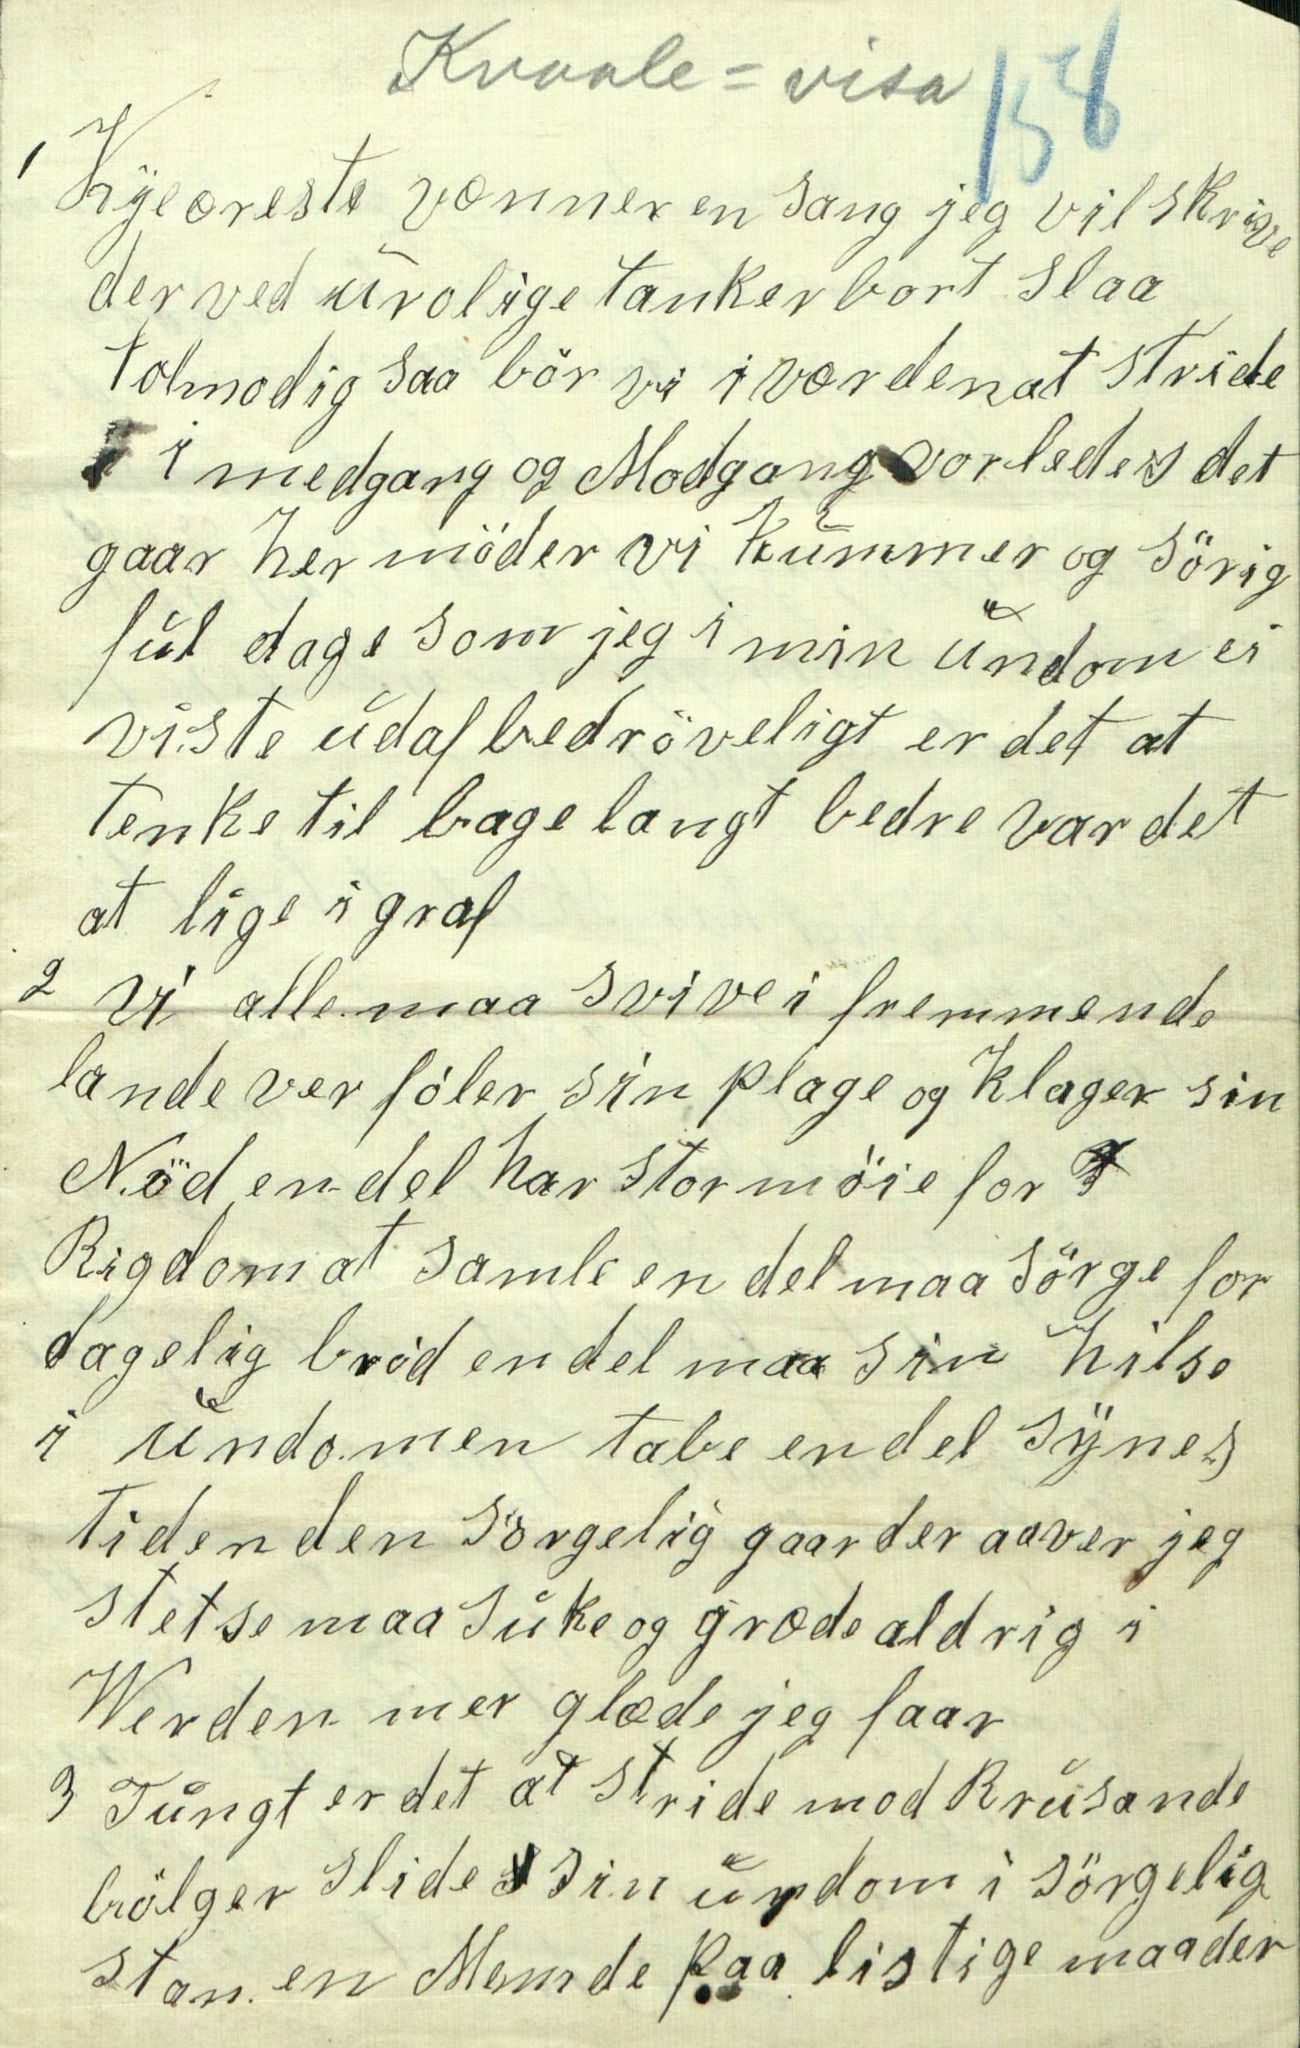 Kvaale = visa 158
1 Kjæreste vænner en sang jeg vil skrive
derved ŭrolige tanker bort slaa
tolmodig saa bör vi i værden at stride
i medgang og Modgang vorledes det
gaar her möder vi kŭmmer og sörig
fŭl dage som jeg i min ŭndom ei
viste ŭdaf bedröveligt er det at
tenke til bage langt bedre var det
at lige i graf
2 Vi alle maa svive i fremmende
lande ver föler sin plage og klager sin
Nöd en del har stor möie for
Rigdom at samle en del maa sörge for
dagelig bröd en del maa sin hilse
i ŭndomen tabe en del sÿnes
tiden den sörgelig gaar der aaver jeg
stetse maa sŭke og græde aldrig i
Werden mer glæde jeg faar
3 Tŭngt er det at stride mod krŭsande
bölger slide sin ŭndom i sörgelig
stan en paa listige maader